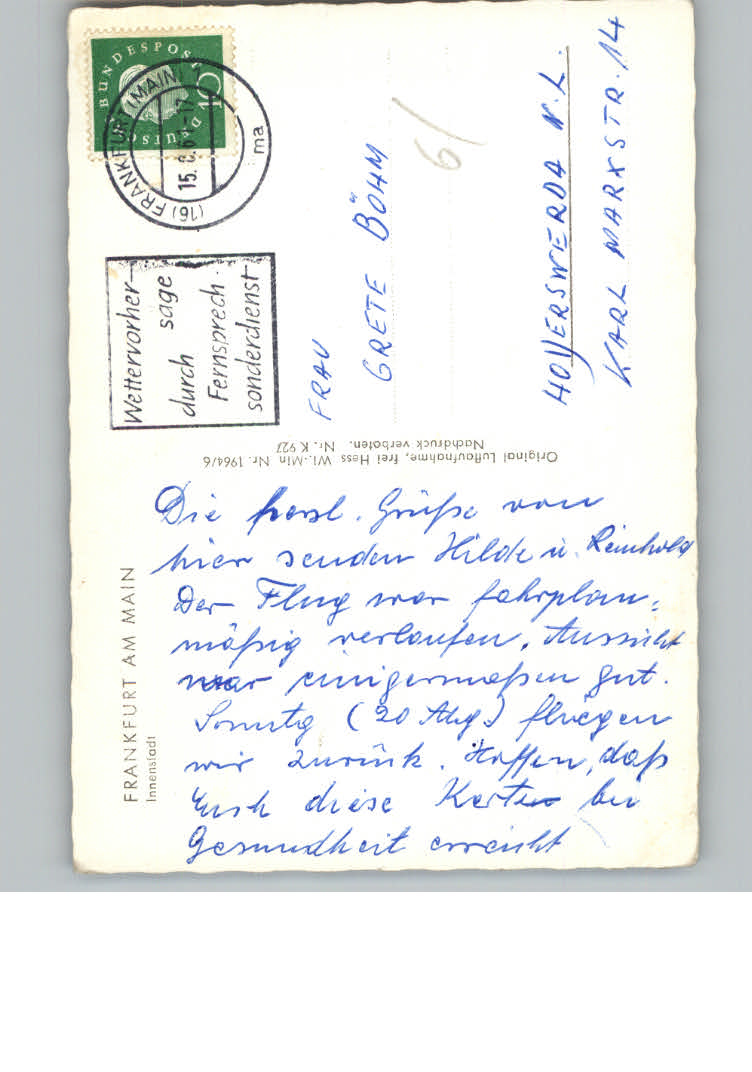 FRANKFURT AM MAIN
Innenstadt
Die herzl. Grüße von
hier senden Hilde u. Reinhold
Der Flug war fahrplan=
mäßig verlaufen. Aussicht
war einigermaßen gut.
Sonntg (20 Aug.) fliegen
wir zurück. Hoffen, daß
Euch diese Karte bei
Gesundheit erreicht
Original Luftaufnahme, frei Hess Wi.-Min Nr. 1964/6
Nachdruck verboten. Nr. K 927
DEUTSCHE BUNDESPOST
(16) FRANKFURT (MAIN)
15.8.61-17
ma
Wettervorher-
sage
durch
Fernsprech-
sonderdienst
FRAU
GRETE BÖHM
HOYERSWERDA N.L.
KARL MARXSTR. 14
6/